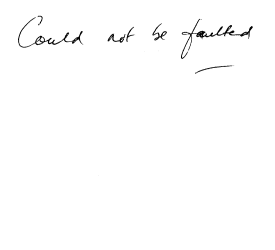 Could not be faulted